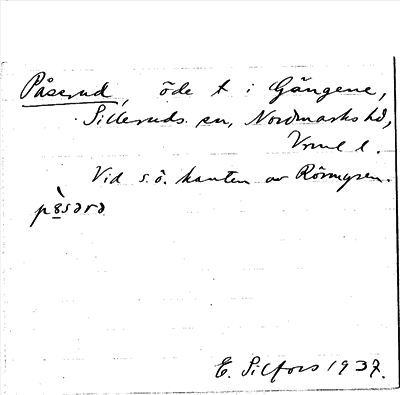 Påserud, öde t i Gängene,
Silleruds sn, Nordmarks hd,
Vrml l.
Vid s.ö. kanten av Rörmyren.
pò̲sərə
E. Silfors 1937.